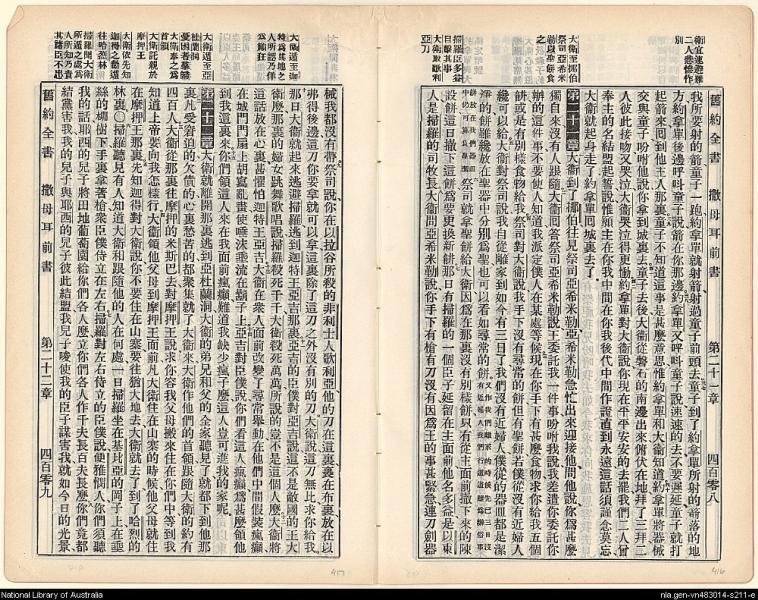 衞宜速避難
二人悲慘作
別
大衞至挪伯
祭司亞希米
勒以聖餅食
之
掃羅臣多益
目擊其事
大衞取歌利
亞刀
舊約全書 撒母耳前書 第二十一章 四百零八
我所要射的箭童子一跑約拿單就射箭射過童子前頭去童子到了約拿單所射的箭落的地
方約拿單後邊呼叫童子說箭在你那邊約拿單又呼叫童子說速速的去不要遲延童子就打
起箭來囘到他主人那裏童子不知道這事是甚麼意思惟約拿單和大衞知道約拿單將器械
交與童子吩咐他說你拿到城裏去童子去後大衞從磐石的南邊出來俯伏在地拜了三拜二
人彼此接吻又哭泣大衞哭泣得更慟約拿單對大衞說你現在平平安安的去罷我們二人曾
奉主的名結盟起誓說惟願主在你我中間在你我後代中間作證直到永遠這話須謹念莫忘
大衞就起身走了約拿單囘城裏去了
第二十一章 大衞到了挪伯往見祭司亞希米勒亞希米勒急忙出來迎接他問他說你爲甚麼
獨自來沒有人跟隨大衞囘答祭司亞希米勒說王委託我一件事吩咐我說我差遣你委託你
辦的這件事不要使人知道我派定僕人在某處等候現在你手下有甚麼食物求你給我五個
餅或是有別樣食物給我祭司對大衞說我手下沒有尋常的餅但有聖餅若僕從沒有近婦人
纔可以給大衞對祭司說我自從離家到如今有三日了我們沒有近婦人僕從的器皿都是潔
淨的餅雖纔放在聖器中分別爲聖也可以看如尋常的餅
祭司就拿聖餅給大衞因爲在那裏沒有別樣餅只有從主面前撤下來的陳
設餅這日撤下這餅爲要更換新餅那日有掃羅的一個臣子延留在主面前他名多益是以東
人是掃羅的司牧長大衞問亞希米勒說你手下有槍有刀沒有因爲王的事甚緊急連刀劍器
大衞遁至迦
人所認乃佯
爲癲狂
大衞遁至亞
杜蘭洞
首領
大衞託親於
摩押王
大衞依先知
往哈烈林
掃羅聞大衞
械我都沒有帶祭司說你在以拉谷所殺的非利士人歌利亞他的刀在這裏裹在布裏放在以
弗得後邊這刀你要拿就可以拿這裏除了這刀之外沒有別的刀大衞說這刀無比求你給我
那日大衞就起來逃避掃羅逃到迦特王亞吉那裏亞吉的臣僕對亞吉說這不是敵國的王大
衞麼那裏的婦女跳舞歌唱說掃羅殺死千千大衞殺死萬萬所說的豈不是這個人麼大衞將
這話放在心裏甚懼怕迦特王亞吉大衞在衆人面前改變了尋常舉動在他們中間假裝瘋癲
在城門門扇上胡寫亂畫使唾沫垂流在鬍子上亞吉對臣僕說你們看這人瘋癲爲甚麼領他
到我這裏來你們領這人來在我面前瘋癲難道我缺少瘋子麼這人豈可進我的家呢
第二十二章 大衞就離開那裏逃到亞杜蘭洞大衞的弟兄和父的全家聽見了就都下到他那
裏凡受窘迫的欠債的心裏愁苦的都聚集就了大衞來大衞作他們的首領跟隨大衞的約有
四百人大衞從那裏往摩押的米斯巴去對摩押王說求你容我父母搬來住在你們中等到我
知道上帝要向我怎樣行大衞領他父母到摩押王面前凡大衞住在山寨的時候他父母就住
在摩押王那裏先知迦得對大衞說你不要住在山寨要往猶大地去大衞就去了到了哈烈的
林裏○掃羅聽見有人知道大衞和跟隨他的人在何處一日掃羅坐在基比亞的岡子上在垂
絲的樹底下手裏拿著槍衆臣僕侍立在左右掃羅對左右侍立的臣僕說便雅憫人你們須聽
我的話耶西的兒子將田地葡萄園給你們各人麼立你們各人作千夫長百夫長麼你們竟都
結黨害我我的兒子與耶西的兒子彼此結盟我兒子唆使我的臣子謀害我就如今日的光景
舊約全書 撒母耳前書 第二十二章 四百零九
National Library of Australia
nla.gen-vn483014-s211-e